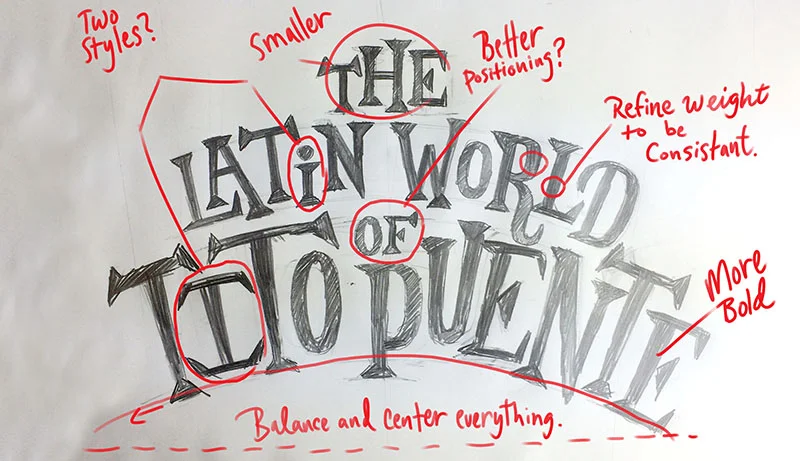 Two
Styles?
Smaller
Better
Positioning?
THE
Refine weight
to be
Consistant.
LATiN WORLD
OF
TITO PUENTE
More
Bold
Balance and center everything.